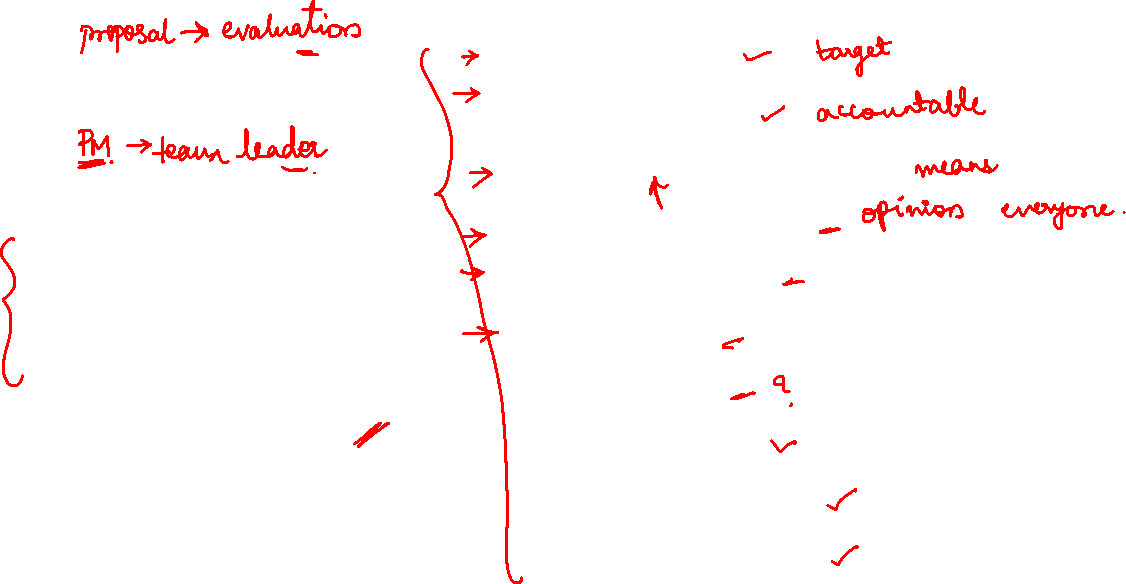 proposal → evaluation
PM. → team leader.
target
accountable
means
opinion everyone.
?